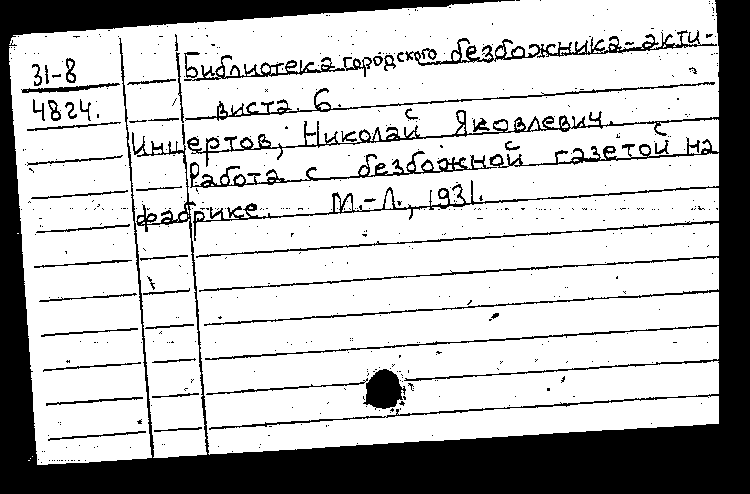 31-8
4824.
Библиотека городского безбожника-акти-
виста. 6.
Инцертов, Николай Яковлевич.
Работа с безбожной газетой на
фабрике. М.-Л., 1931.